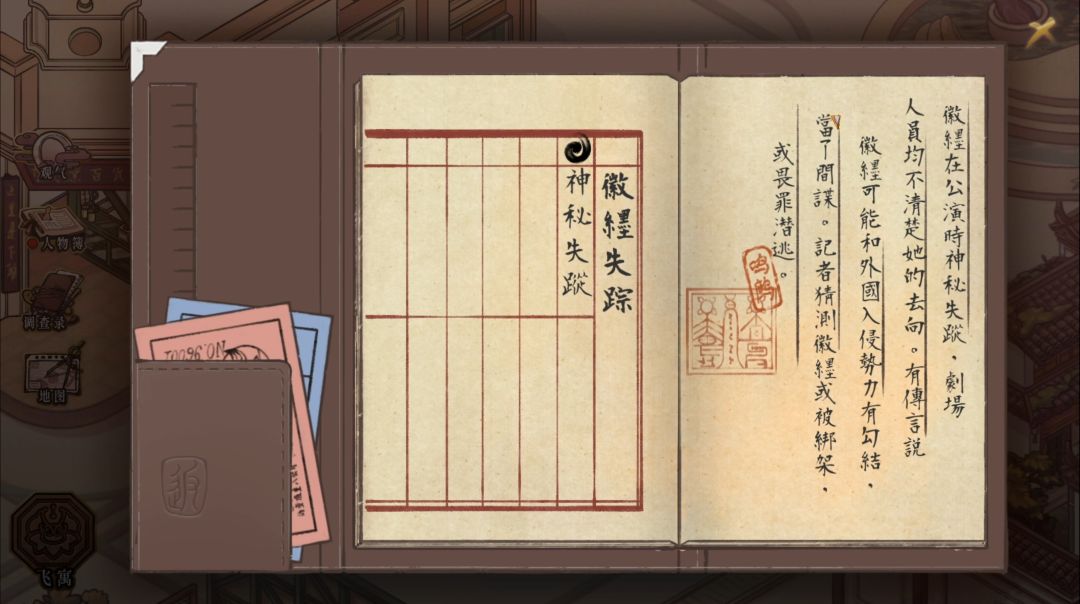 徽纆在公演時神秘失蹤，劇場
人員均不清楚她的去向。有傳言説
徽纆可能和外國入侵勢力有勾結，
當了間諜。記者猜測徽纆或被綁架，
或畏罪潜逃。
徽纆失踪
神秘失蹤
观气
人物簿
调查录
地图
飞寓
NO.96001